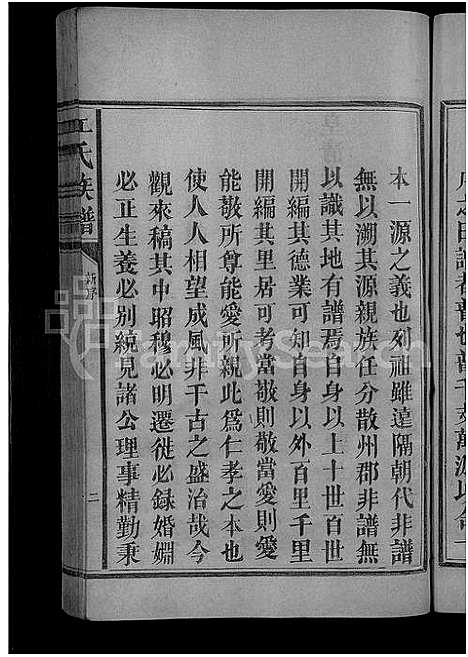 本一源之義也列祖雖遠隔朝代非譜
無以溯其源親族任分散州郡非譜無
以識其地有譜焉自身以上十世百世
開編其德業可知自身以外百里千里
開編其里居可考當敬則敬當愛則愛
能敬所尊能愛所親此爲仁孝之本也
使人人相望成風非千古之盛治哉今
觀來稿其中昭穆必明遷徙必錄婚姻
必正生養必別統見諸公理事精勤秉
氏族譜
新序
二
FamilySearch